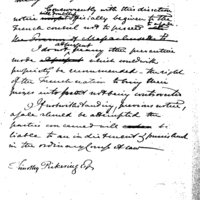 Concurrently with this direction
notice officially be given to the
French Consul not to present
the
I do not fancy other preventive
mode which could with
propriety be recommended: the right
of the French nation to bring their
prizes into port not being controverted
If notwithstanding previous notice,
a sale should be attempted the
parties concerned will be
liable to an indictment & punished
in the ordinary course of law
Timothy Pickering Esq